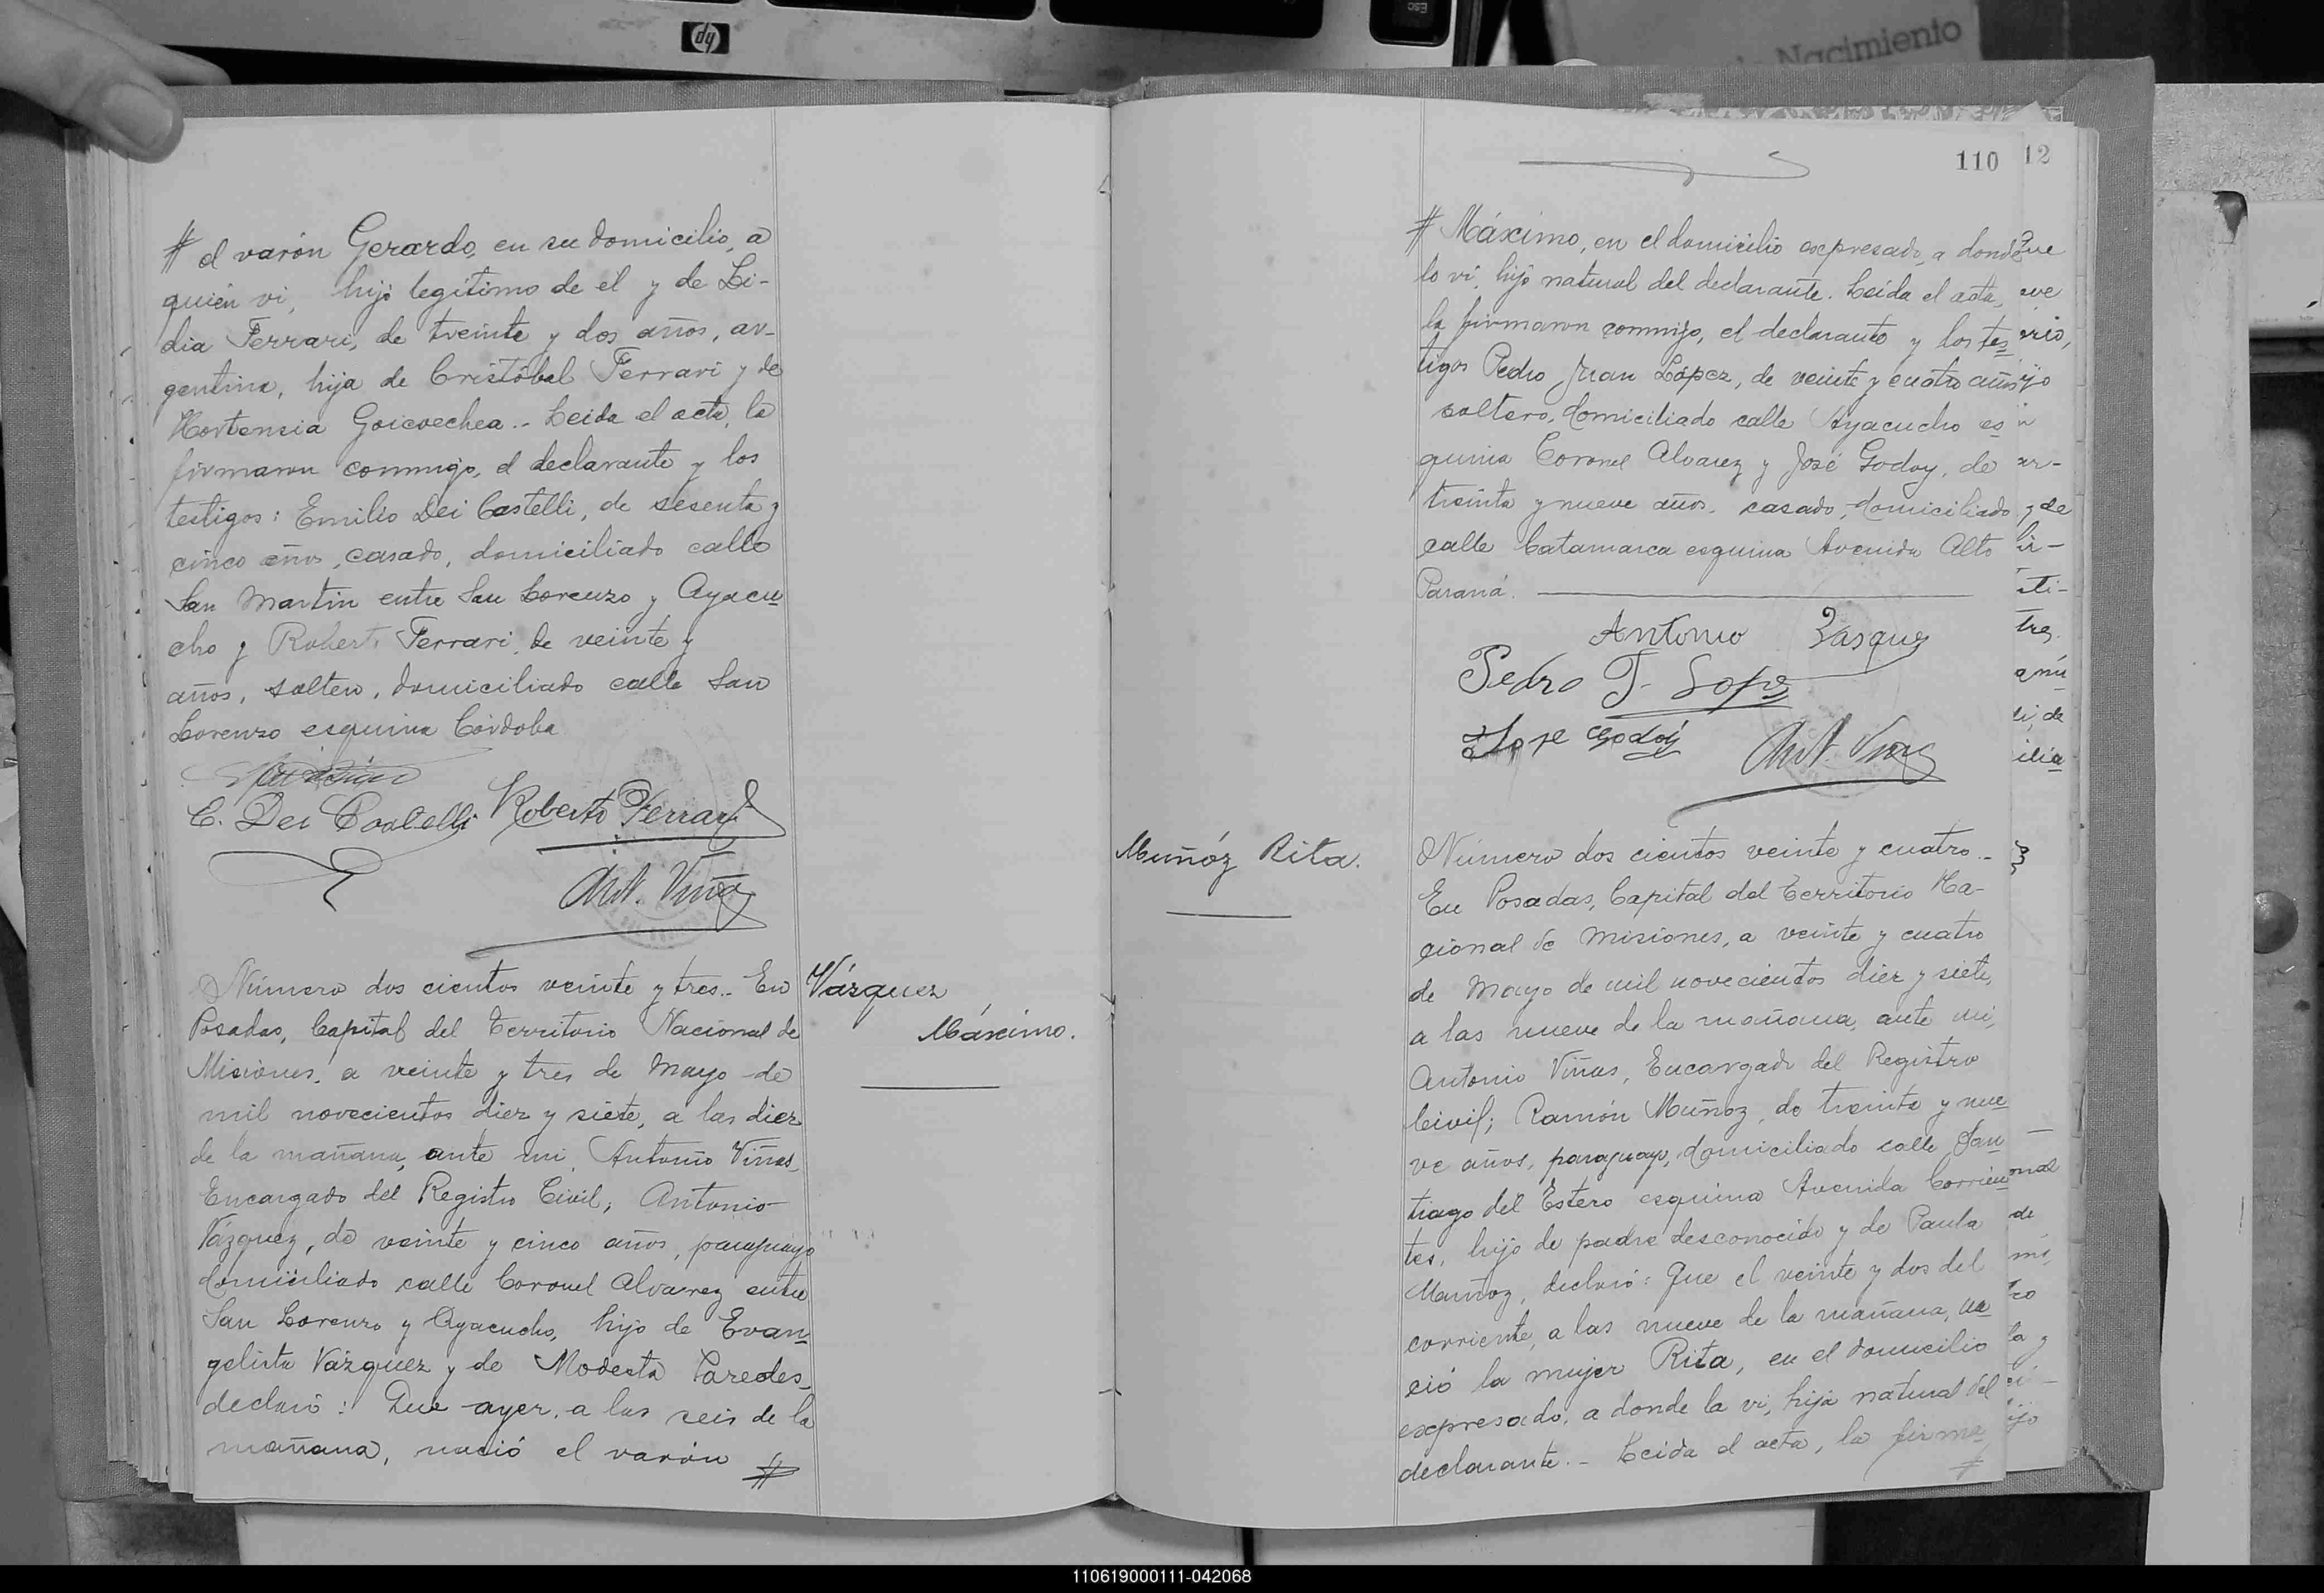 hp
ESC
Nacimiento
# el varón Gerardo, en su domicilio, a
quién vi, hijo legítimo de el y de Li-
dia Ferrari, de treinta y dos años, ar-
gentina, hija de Cristóbal Ferrari y de
Hortensia Goicoechea.- Leida el acta, la
firmaron conmigo, el declarante y los
testigos: Emilio Dei Castelli, de sesenta y
cinco años, casado, domiciliado calle
San Martin entre San Lorenzo y Ayacu
cho y Roberto Ferrari, de veinte y
años, soltero, domiciliado calle San
Lorenzo esquina Córdoba
E. Dei Castelli Roberto Ferrari
Ant. Viñas
Número dos cientos veinte y tres.- En
Posadas, Capital del Territorio Nacional de
Misiones, a veinte y tres de Mayo de
mil novecientos diez y siete, a las diez
de la mañana, ante mi, Antonio Viñas,
Encargado del Registro Civil; Antonio
Vázquez, de veinte y cinco años, paraguayo
domiciliado calle Coronel Alvarez entre
San Lorenzo y Ayacucho, hijo de Evan
gelista Vázquez y de Modesta Paredes,
declaró: Que ayer, a las seis de la
mañana, nació el varón #
Vázquez
Máximo.
110
12
# Máximo, en el domicilio expresado, a donde
lo vi, hijo natural del declarante. Leída el acta,
la firmaron conmigo, el declarante y los tes
tigos Pedro Juan López, de veinte y cuatro años
soltero, domiciliado calle Ayacucho es
quina Coronel Alvarez y José Godoy, de
treinta y nueve años, casado, domiciliado
calle Catamarca esquina Avenida Alto
Paraná.
Antonio Vasquez
Pedro J. Lopez
Jose Godoy
Ant. Viñas
Muñóz Rita.
Número dos cientos veinte y cuatro.-
En Posadas, Capital del Territorio Na-
cional de Misiones, a veinte y cuatro
de Mayo de mil novecientos diez y siete,
a las nueve de la mañana, ante mi,
Antonio Viñas, Encargado del Registro
Civil; Ramón Muñoz, de treinta y nue
ve años, paraguayo, domiciliado calle San
tiago del Estero esquina Avenida Corrien
tes, hijo de padre desconocido y de Paula
Muñoz, declaró: Que el veinte y dos del
corriente, a las nueve de la mañana, na
ció la mujer Rita, en el domicilio
expresado, a donde la vi, hija natural del
declarante.- Leida el acta, la firma
#
110619000111-042068